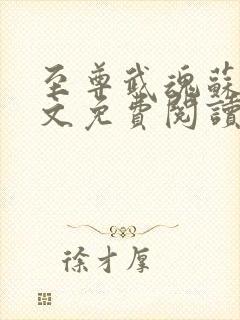 至尊武魂蘇
文免費閱讀
徐才厚